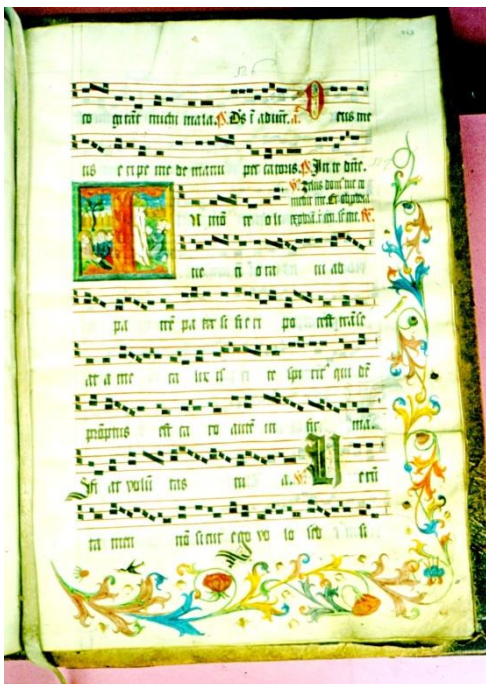 co gitāt michi mala. Ps. Ds ī adiut. a. Deus me
us eripe me de manu pec catoris. Ps. In te dn̄e.
V. Zelus dom' tue co
medit me. Et obprobria
In mō te o li
ue ti o ra uit ad
pa trē pa ter si fie ri po test trāse
at a me ca lix is te spi rit' qui dē
prōptus est ca ro autē in fir ma.
Fi at volū tas tu a. V. Verū
ta men nō sicut ego vo lo sed si